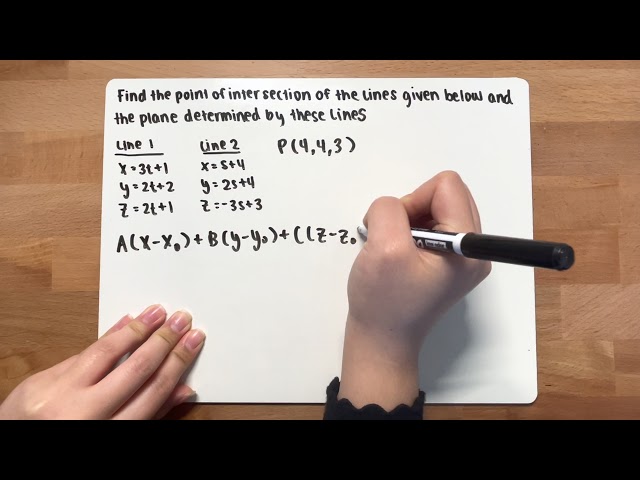 Find the point of intersection of the lines given below and
the plane determined by these lines
Line 1 Line 2 P(4,4,3)
x=3t+1 x=s+4
y=2t+2 y=2s+4
z=2t+1 z=-3s+3
A(x-x₀)+B(y-y₀)+C(z-z₀